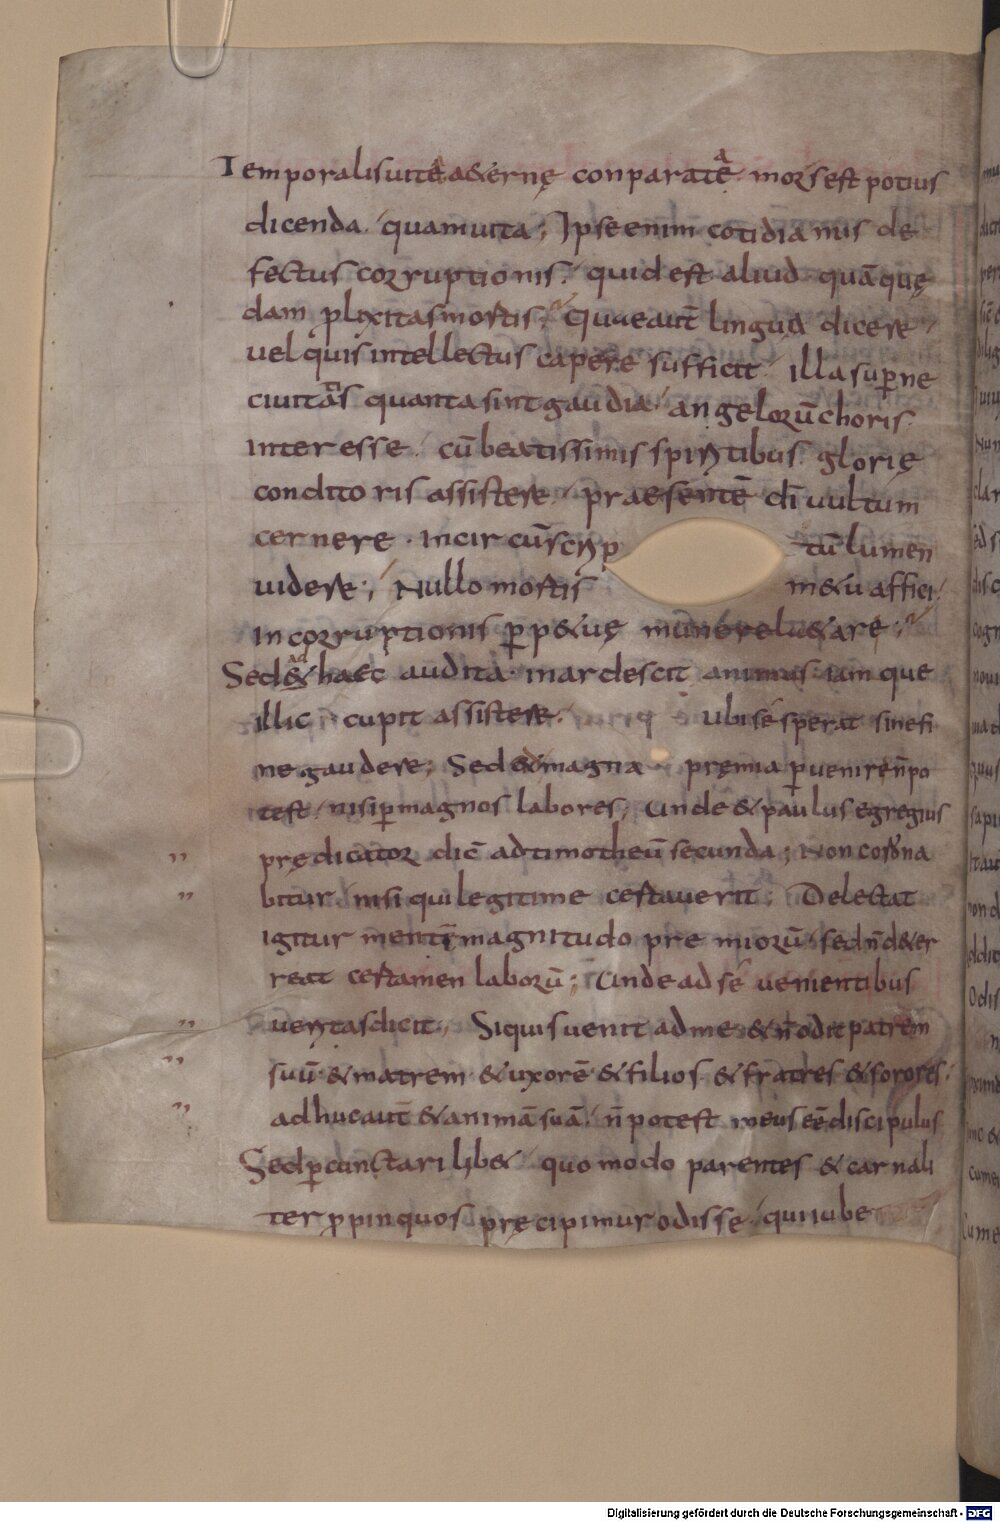 Temporalis uitę aeternę conparata mors est potius
dicenda quam uita; Ipse enim cotidianus de
fectus corruptionis quid est aliud quā quę
dam plixitas mortis; Quae aut̄ lingua dicere
uel quis intellectus capere sufficit illa supne
ciuitatis quanta sint gaudia angelorū choris
interesse cū beatissimis spiritibus glorię
conditoris assistere praesentē dī uultum
cernere incircūscrip tū lumen
uidere; Nullo mortis metu affici
incorruptionis perpetuę munere lętare;
Sed ad haec audita inardescit animus iamque
illic cupit assistere ubi se sperat sine fi
ne gaudere; Sed ad magna pręmia puenire n̄ po
test nisi p magnos labores; Unde & paulus egregius
prędicator dic̄ ad timotheū secunda; Non corona
bitur nisi qui legitime certauerit; Delectat
igitur mentē magnitudo premiorū sed n̄ deter
reat certamen laborū; Unde ad se uenientibus
ueritas dicit; Siquis uenit ad me & n̄ odit patrem
suū & matrem & uxorē & filios & fratres & sorores
adhuc aut̄ & animā suā n̄ potest meus eē discipulus
Sed pcunctari libet quomodo parentes & carnali
ter ppinquos pręcipimur odisse qui iube
Digitalisierung gefördert durch die Deutsche Forschungsgemeinschaft - DFG